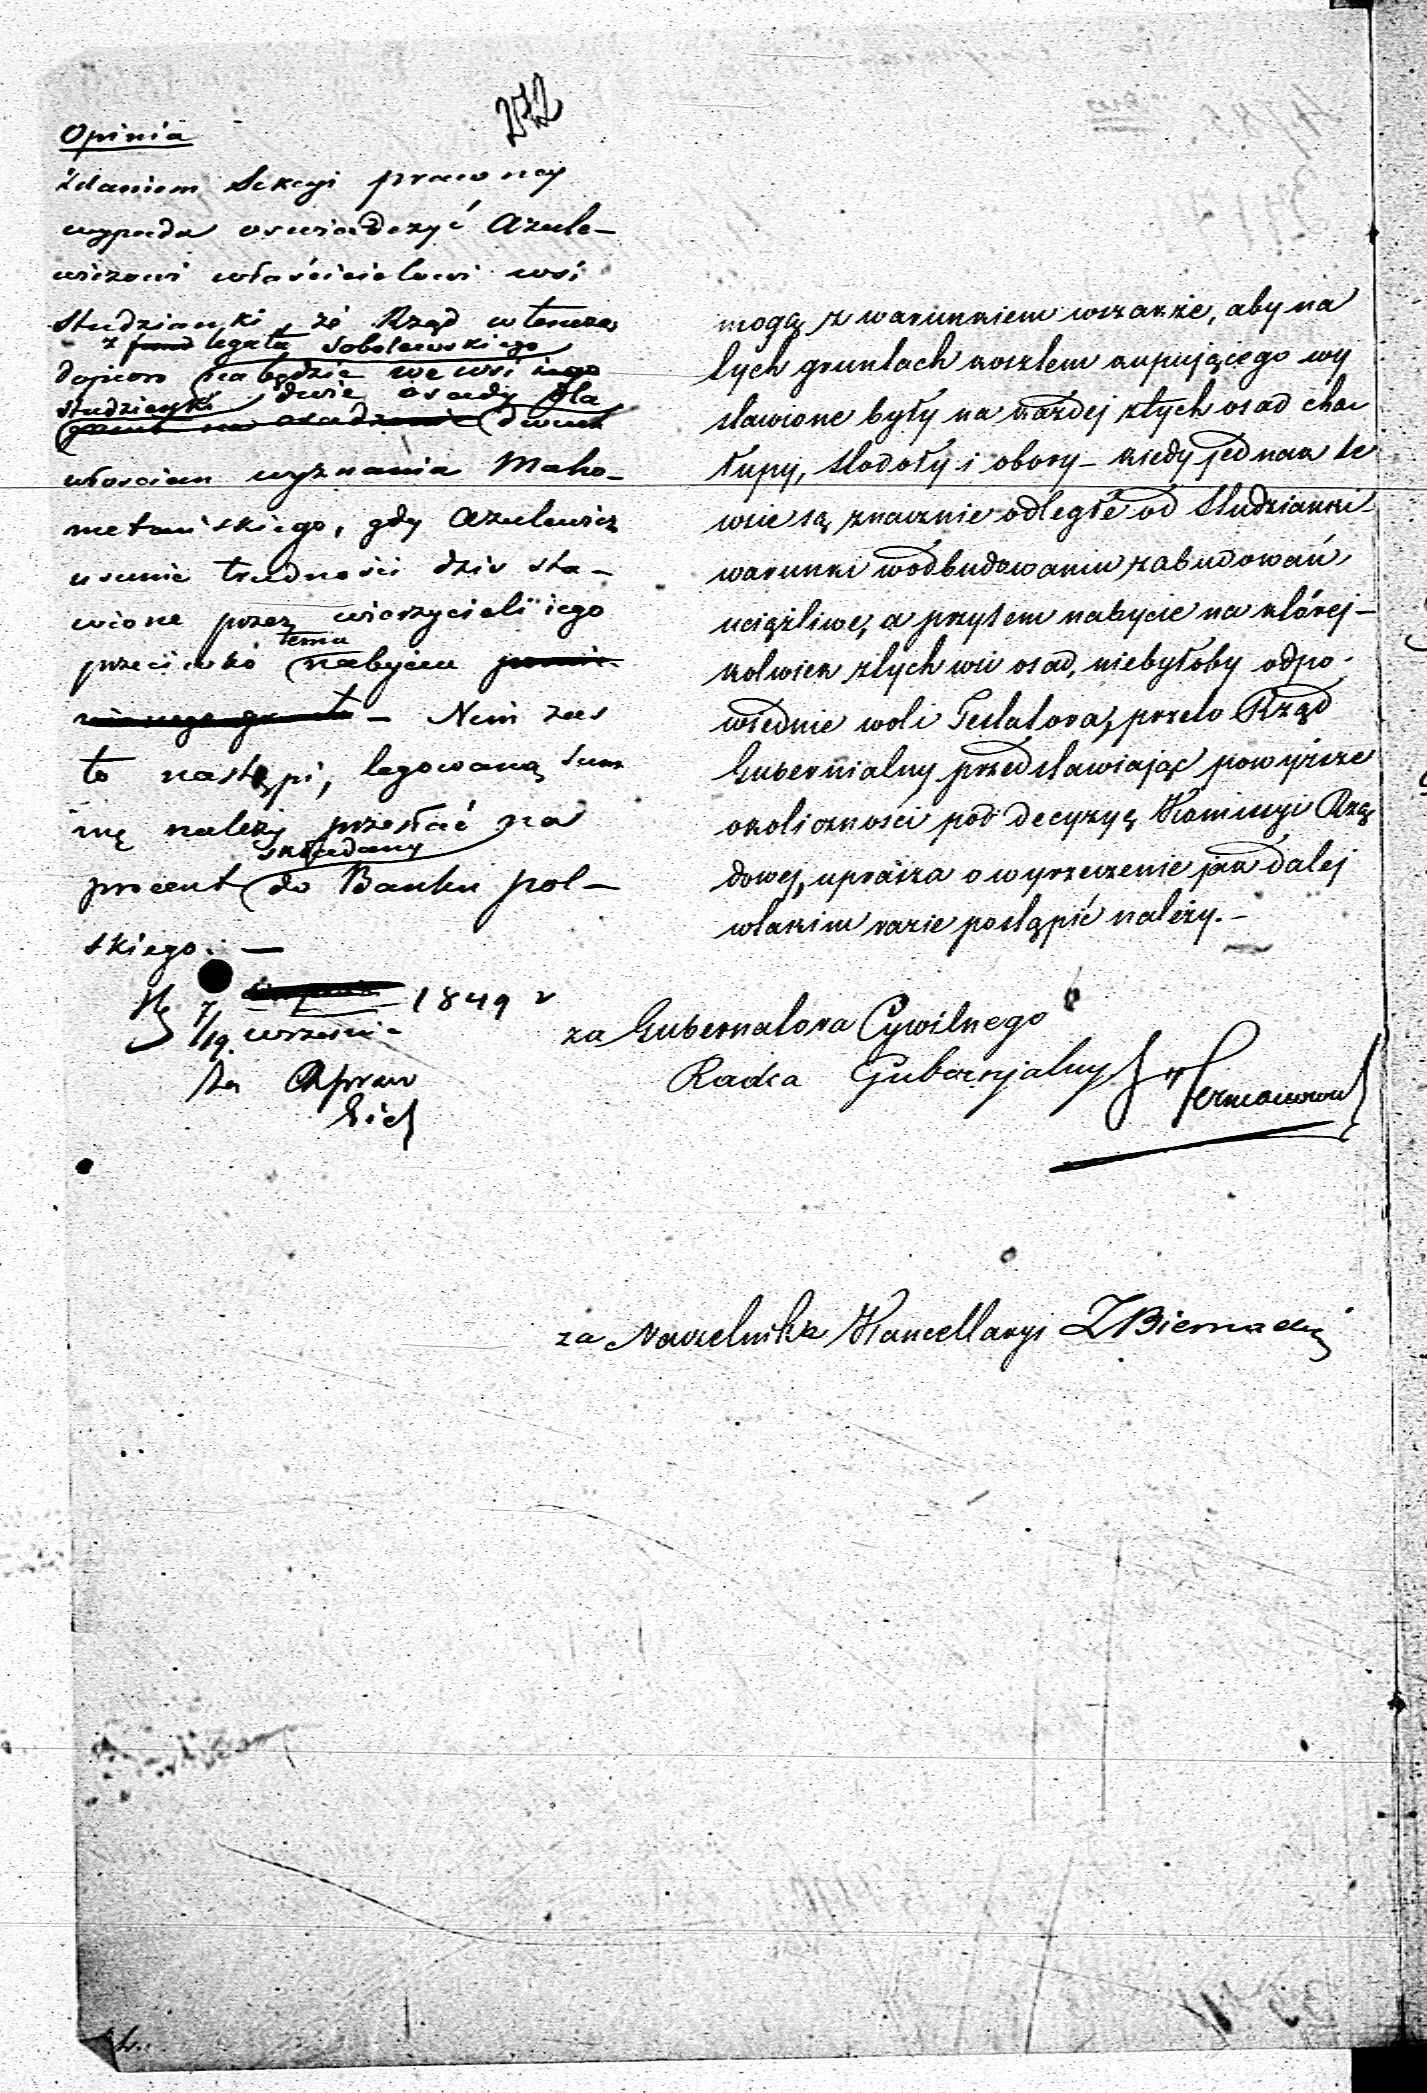 272
Opinia
Zdaniem Sekcyi prawnej
wypada oswiadczyć Azule-
wiczowi właścicielowi wsi
Studzianki, że Rząd wtenczas
z fund legatu Sobolewskiego
dopiero nabędzie we wsi iego
Studzianki dwie osady dla
grunt na osadzenie dwuch
włoscian wyznania Maho-
metańskiego, gdy Azulewicz
usunie trudności dzis sta-
wione przez wierzycieli iego
przeciwko temu nabyciu pomie-
nionego gruntu - Nim zas
to nastąpi, legowaną sum
mę należy przesłać na
procent składany do Banku pol-
skiego. -
7/19. Sierpnia 1849 r
września
mogą, z warunkiem wszakże, aby na
tych gruntach kosztem kupującego wy
stawione były na każdej z tych osad cha
łupy, stodoły i obory - kiedy jednak te
wsie są znacznie odległe od Studzianki
warunki w odbudowaniu zabudowań
uciążliwe, a przytem nabycie na której-
kolwiek z tych wsi osad, niebyłoby odpo-
wiednie woli Testatora, przeto Rząd
Gubernialny przedstawiając powyższe
okoliczności pod decyzyą Kommisyi Rzą
dowej, uprasza o wyrzeczenie jak dalej
w takim razie postąpić należy. -
za Gubernatora Cywilnego
Radca Gubernjalny
za Naczelnika Kancellaryi Z Biernacki